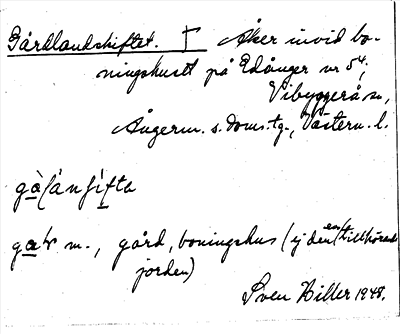 Gårdlandskiftet. † Åker invid bo-
ningshuset på Edånger nr 5⁴,
Vibyggerå sn,
Ångerm. s. doms.tg., Västern. l.
m., gård, boningshus (ej den en tillhörande
jorden)
Sven Hiller 1948.